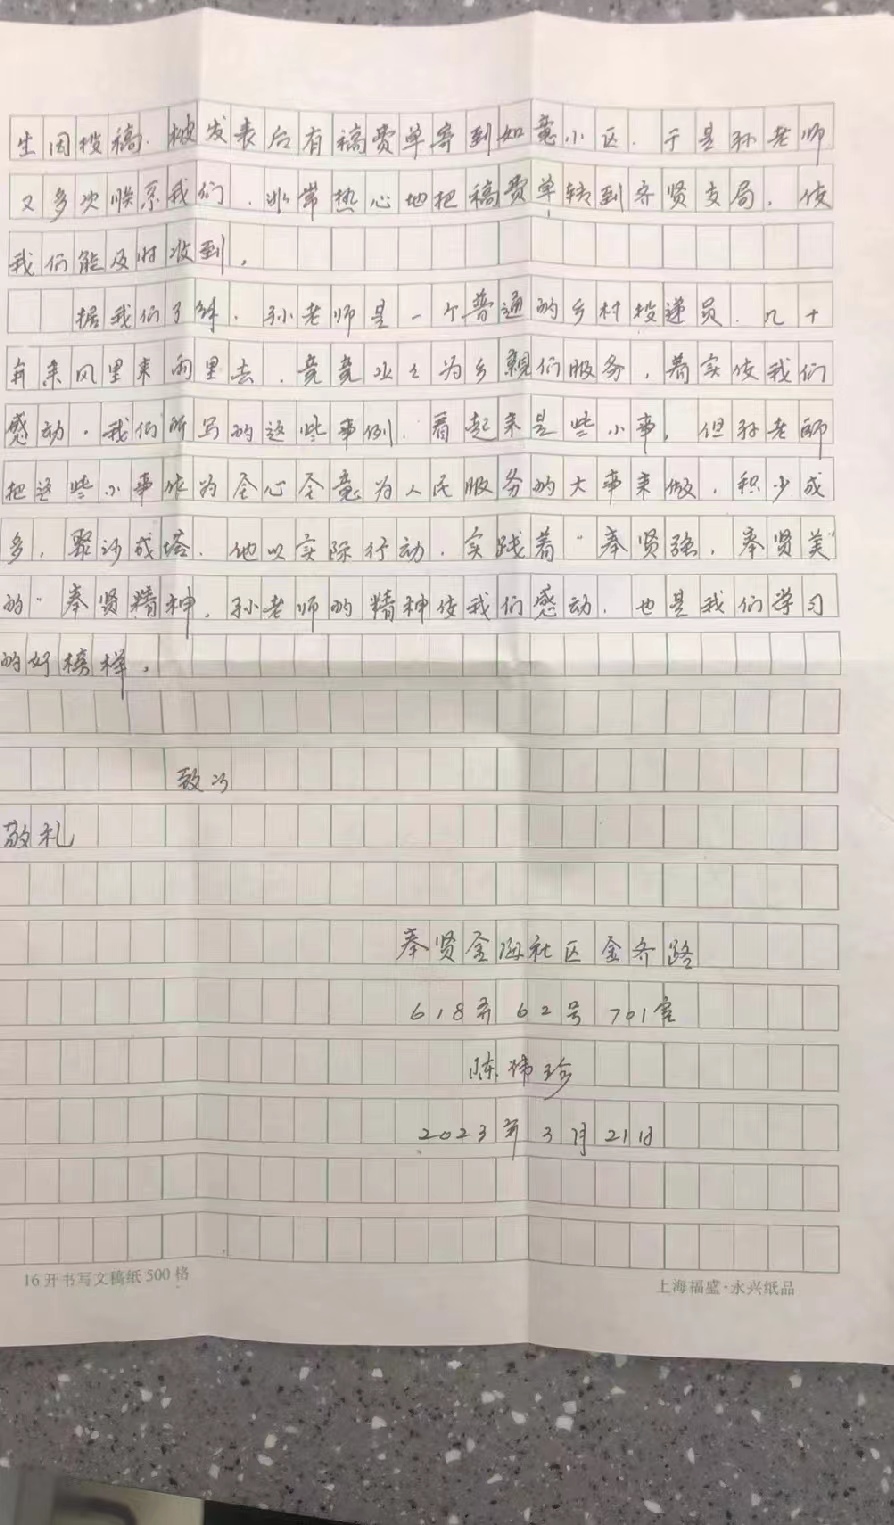 生因投稿.被发表后有稿费单寄到如意小区.于是孙老师
又多次联系我们.非常热心地把稿费单转到齐贤支局.使
我们能及时收到。
据我们了解.孙老师是一个普通的乡村投递员.几十
年来风里来雨里去.兢兢业业为乡親们服务,着实使我们
感动。我们所写的这些事例.看起来是些小事,但孙老师
把这些小事作为全心全意为人民服务的大事来做.积少成
多,聚沙成塔.他以实际行动.实践着"奉贤强.奉贤美"
的"奉贤精神.孙老师的精神使我们感动.也是我们学习
的好榜样。
致以
敬礼
奉贤金海社区金齐路
618弄62号701室
陈 珍
2023年3月21日
16开书写文稿纸500格
上海福盛·永兴纸品